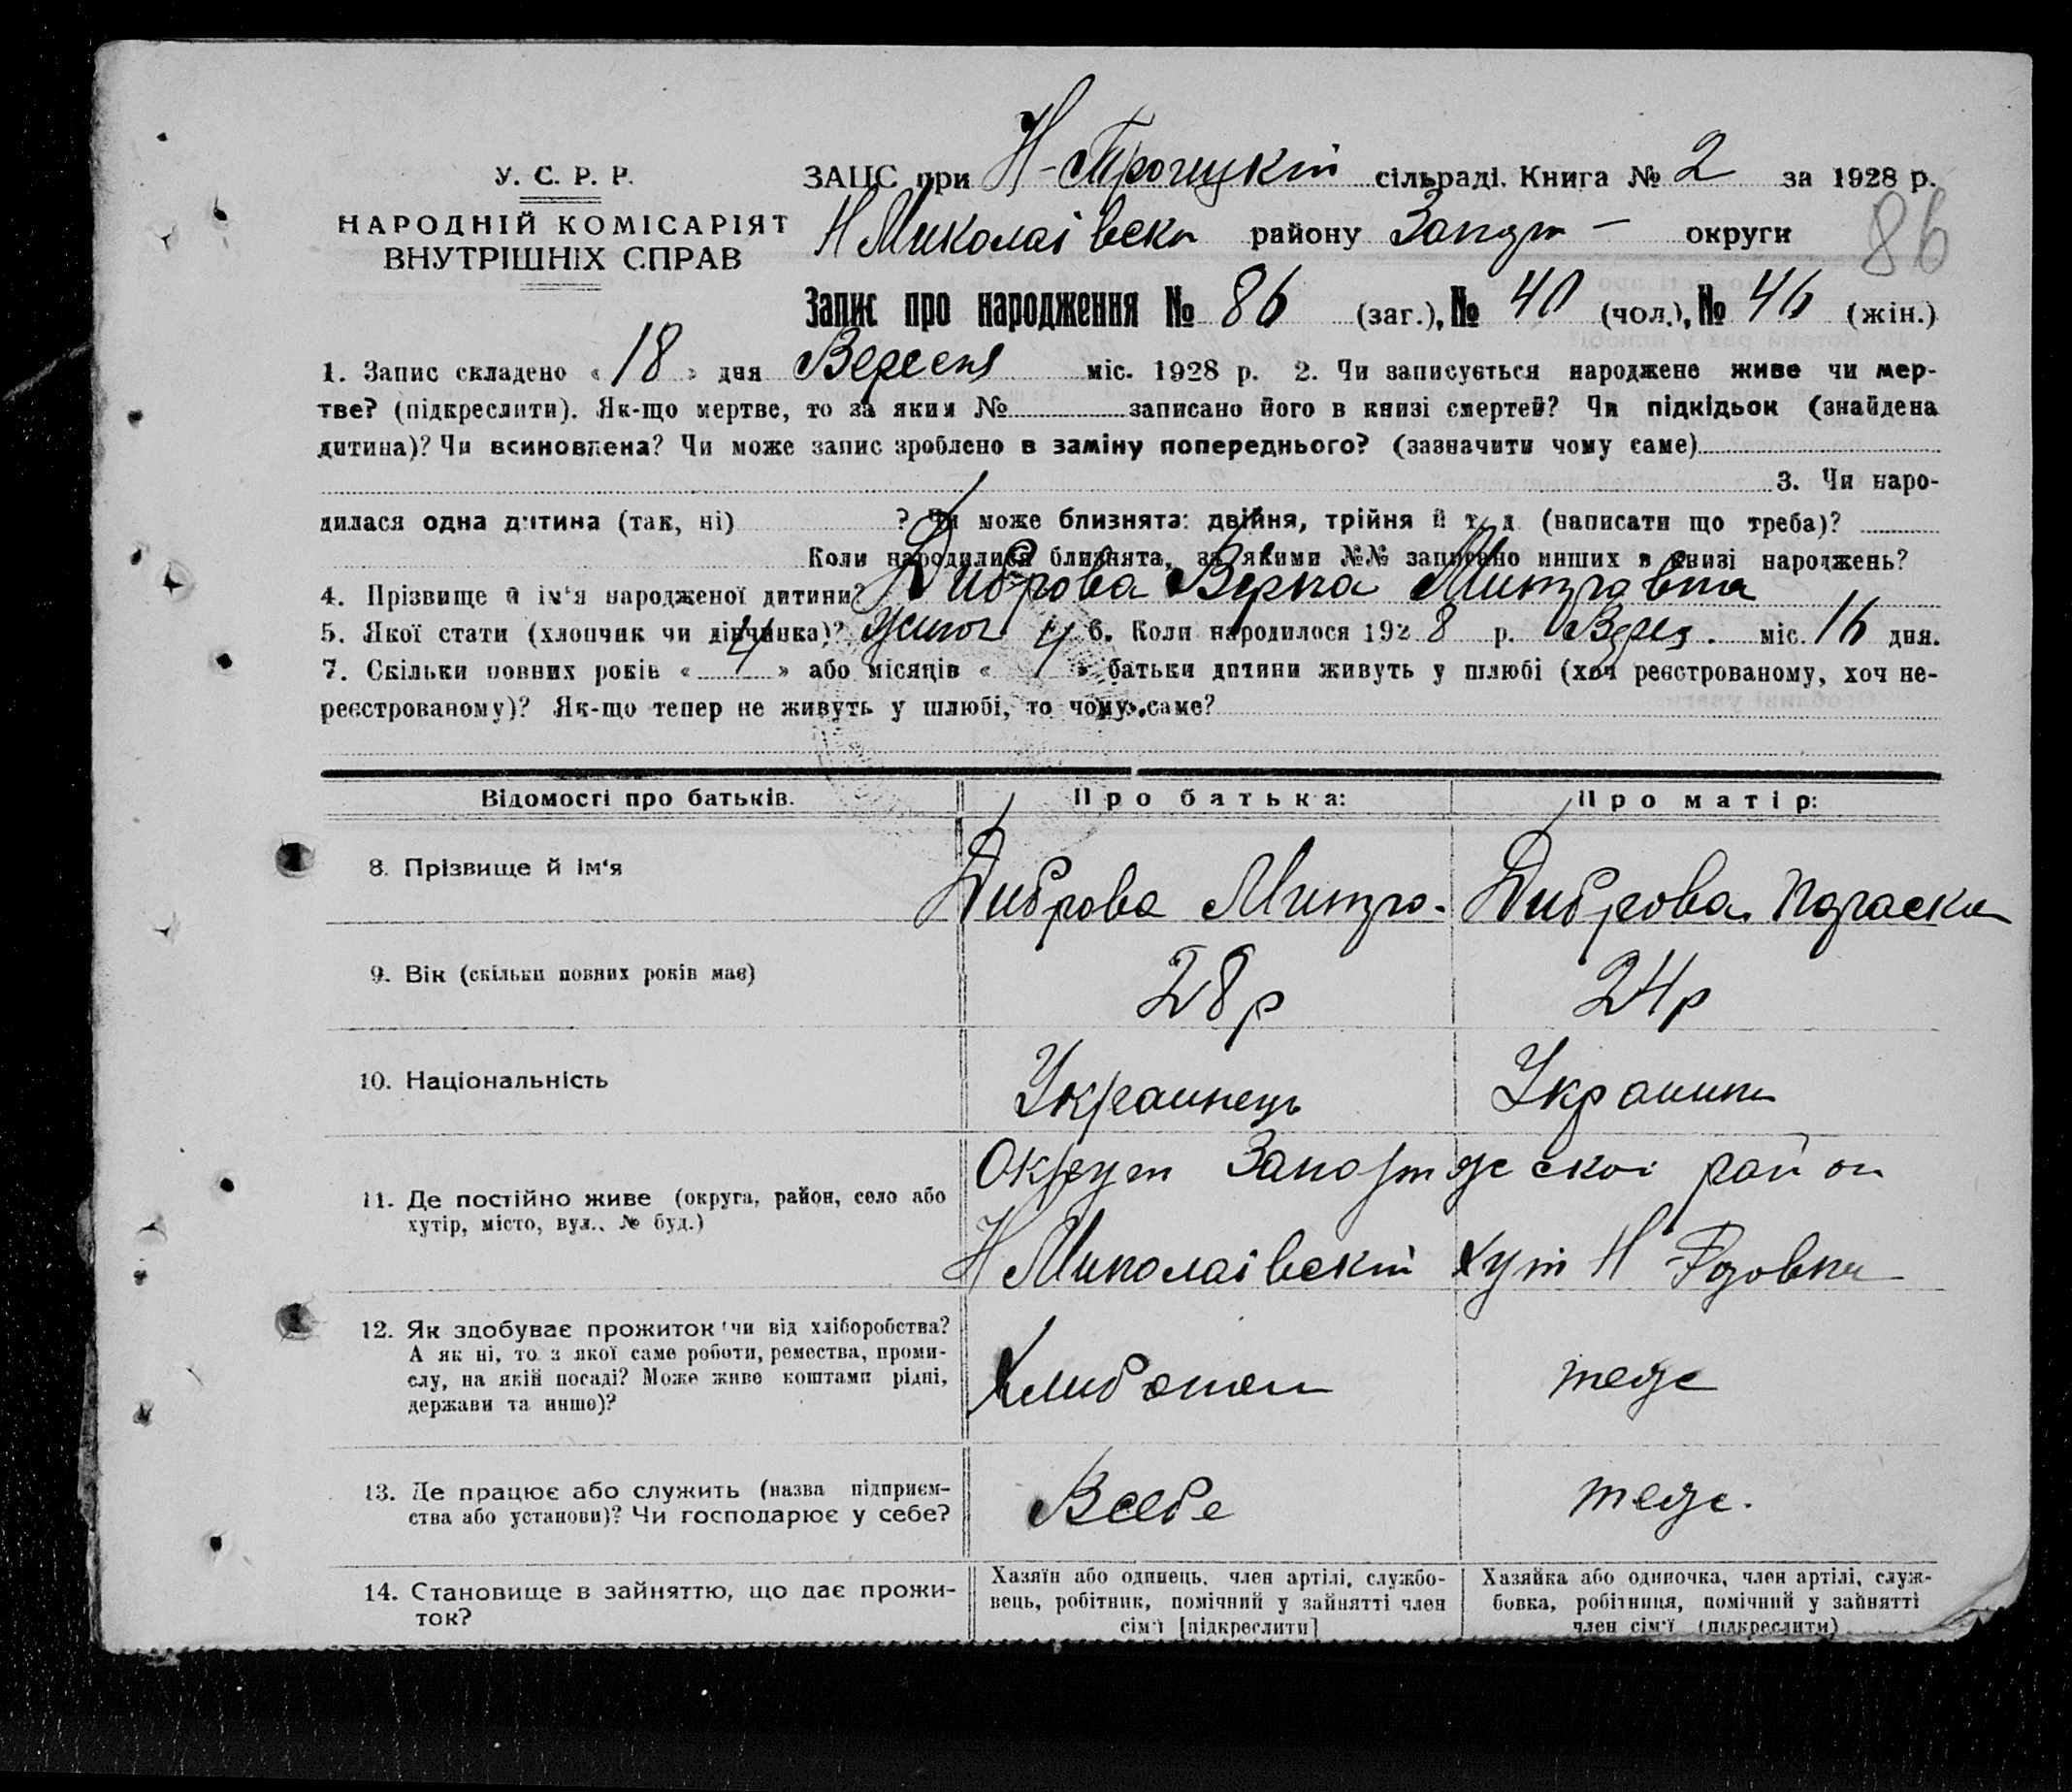 У. С. Р. Р.
НАРОДНІЙ КОМІСАРІЯТ
ВНУТРІШНІХ СПРАВ
ЗАЦС при Н-Троицкій сільраді. Книга № 2 за 1928 р.
Н Миколаівск району Запор - округи
86
Запис про народження № 86 (заг.), № 40 (чол.), № 46 (жін.)
1. Запис складено « 18 » дня Вересня міс. 1928 р. 2. Чи записується народжене живе чи мер-
тве? (підкреслити). Як-що мертве, то за яким № записано його в книзі смертей? Чи підкідьок (знайдена
дитина)? Чи всиновлена? Чи може запис зроблено в заміну попереднього? (зазначити чому саме)
3. Чи наро-
дилася одна дитина (так, ні) ? Чи може близнята: двійня, трійня й т. д. (написати що треба)?
Коли народилися близнята, за якими №№ записано инших в книзі народжень?
4. Прізвище й ім'я народженої дитини? Диброва Вірка Митровна
5. Якої стати (хлопчик чи дівчинка)? жиноч 6. Коли народилося 1928 р. Верес. міс. 16 дня.
7. Скільки повних років « 4 » або місяців « 4 » батьки дитини живуть у шлюбі (хоч реєстрованому, хоч не-
реєстрованому)? Як-що тепер не живуть у шлюбі, то чому саме?
Відомості про батьків. Про батька: Про матір:
8. Прізвище й ім'я Диброва Митро. Диброва Параска
9. Вік (скільки повних років має) 28 р 24 р
10. Національність Украинець Украинк
11. Де постійно живе (округа, район, село або
хутір, місто, вул., № буд.)
Округ Запоріжской район
Н Миколаівскій хут Н
12. Як здобуває прожиток чи від хліборобства?
А як ні, то з якої саме роботи, ремества, проми-
слу, на якій посаді? Може живе коштами рідні,
держави та инше)?
теж
13. Де працює або служить (назва підприєм-
ства або установи)? Чи господарює у себе?
Всебе теж.
14. Становище в зайняттю, що дає прожи-
ток?
Хазяїн або одинець, член артілі, службо-
вець, робітник, помічний у зайнятті член
сім'ї [підкреслити]
Хазяйка або одиночка, член артілі, служ-
бовка, робітниця, помічний у зайнятті
член сім'ї (підкреслити)